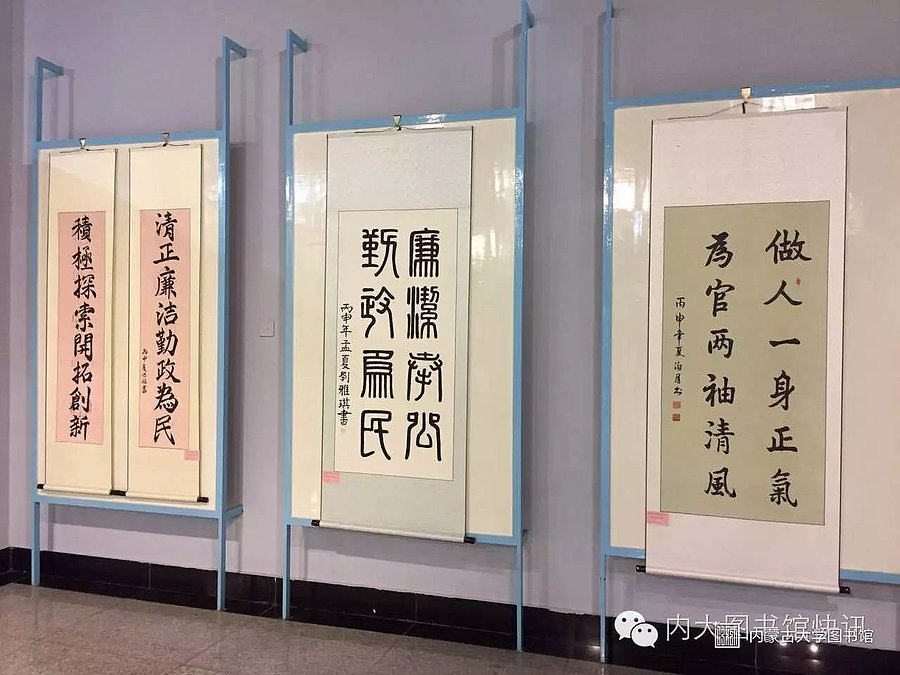 清正廉洁勤政為民
丙申夏
積極探索開拓創新
廉潔奉公
勤政為民
丙申年孟夏劉雅琪書
做人一身正氣
為官两袖清風
丙申年夏
内大图书馆快讯
内蒙古大学图书馆